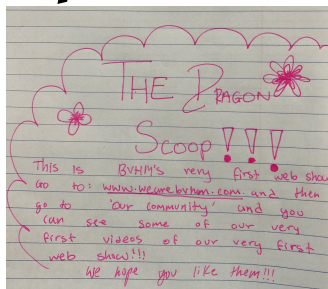 THE DRAGON
Scoop!!!
This is BVHM's very first web show
Go to: www.wearebvhm.com. and then
go to 'our community' and you
can see some of our very
first videos of our very first
web show!!!
We hope you like them!!!